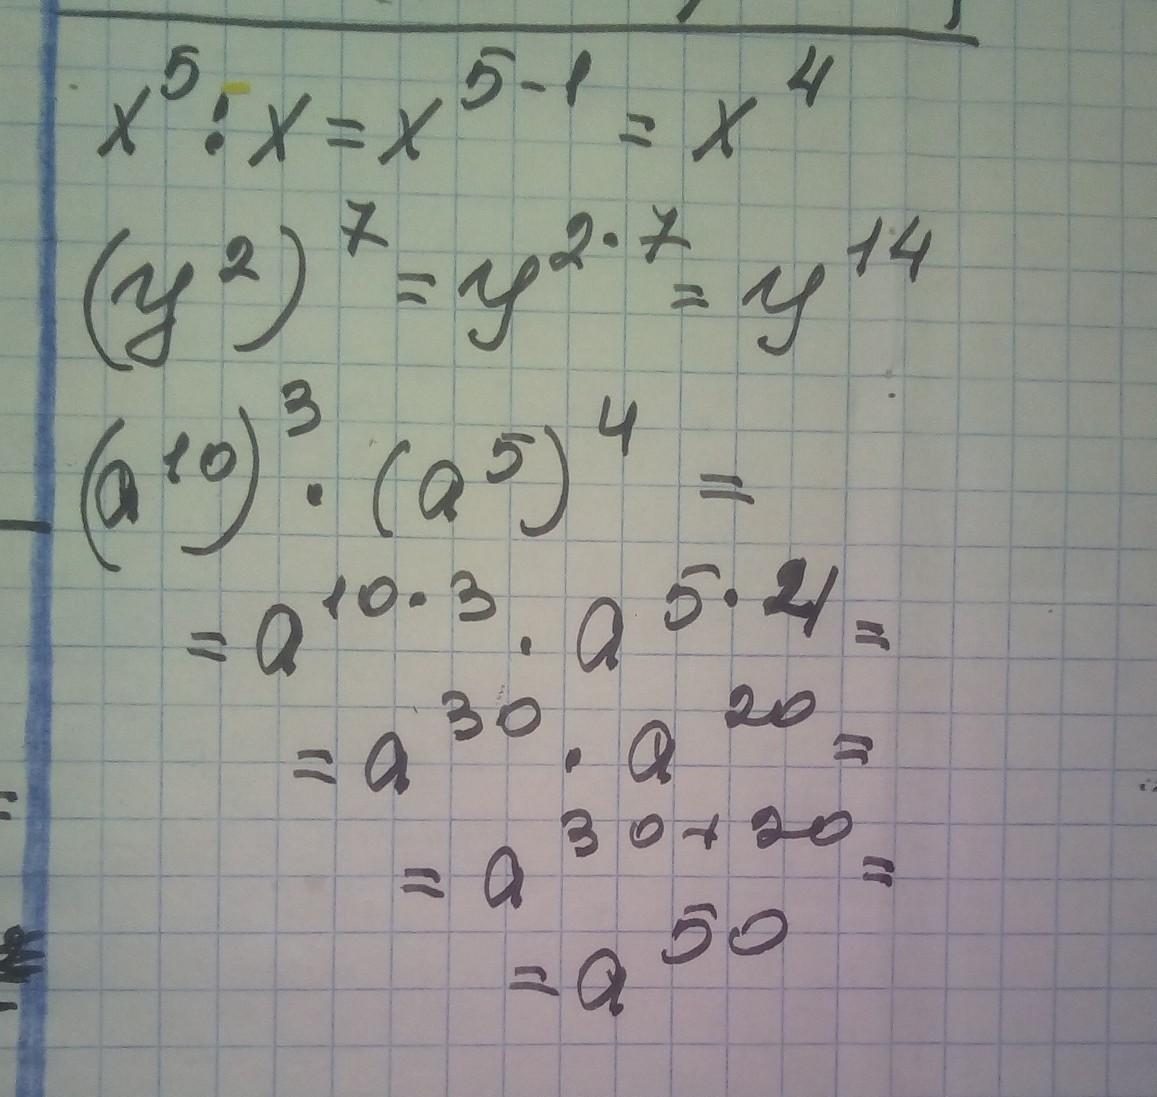 x⁵ : x = x⁵⁻¹ = x⁴
(y²)⁷ = y²·⁷ = y¹⁴
(a¹⁰)³ · (a⁵)⁴ =
= a¹⁰·³ · a⁵·⁴ =
= a³⁰ · a²⁰ =
= a³⁰⁺²⁰ =
= a⁵⁰